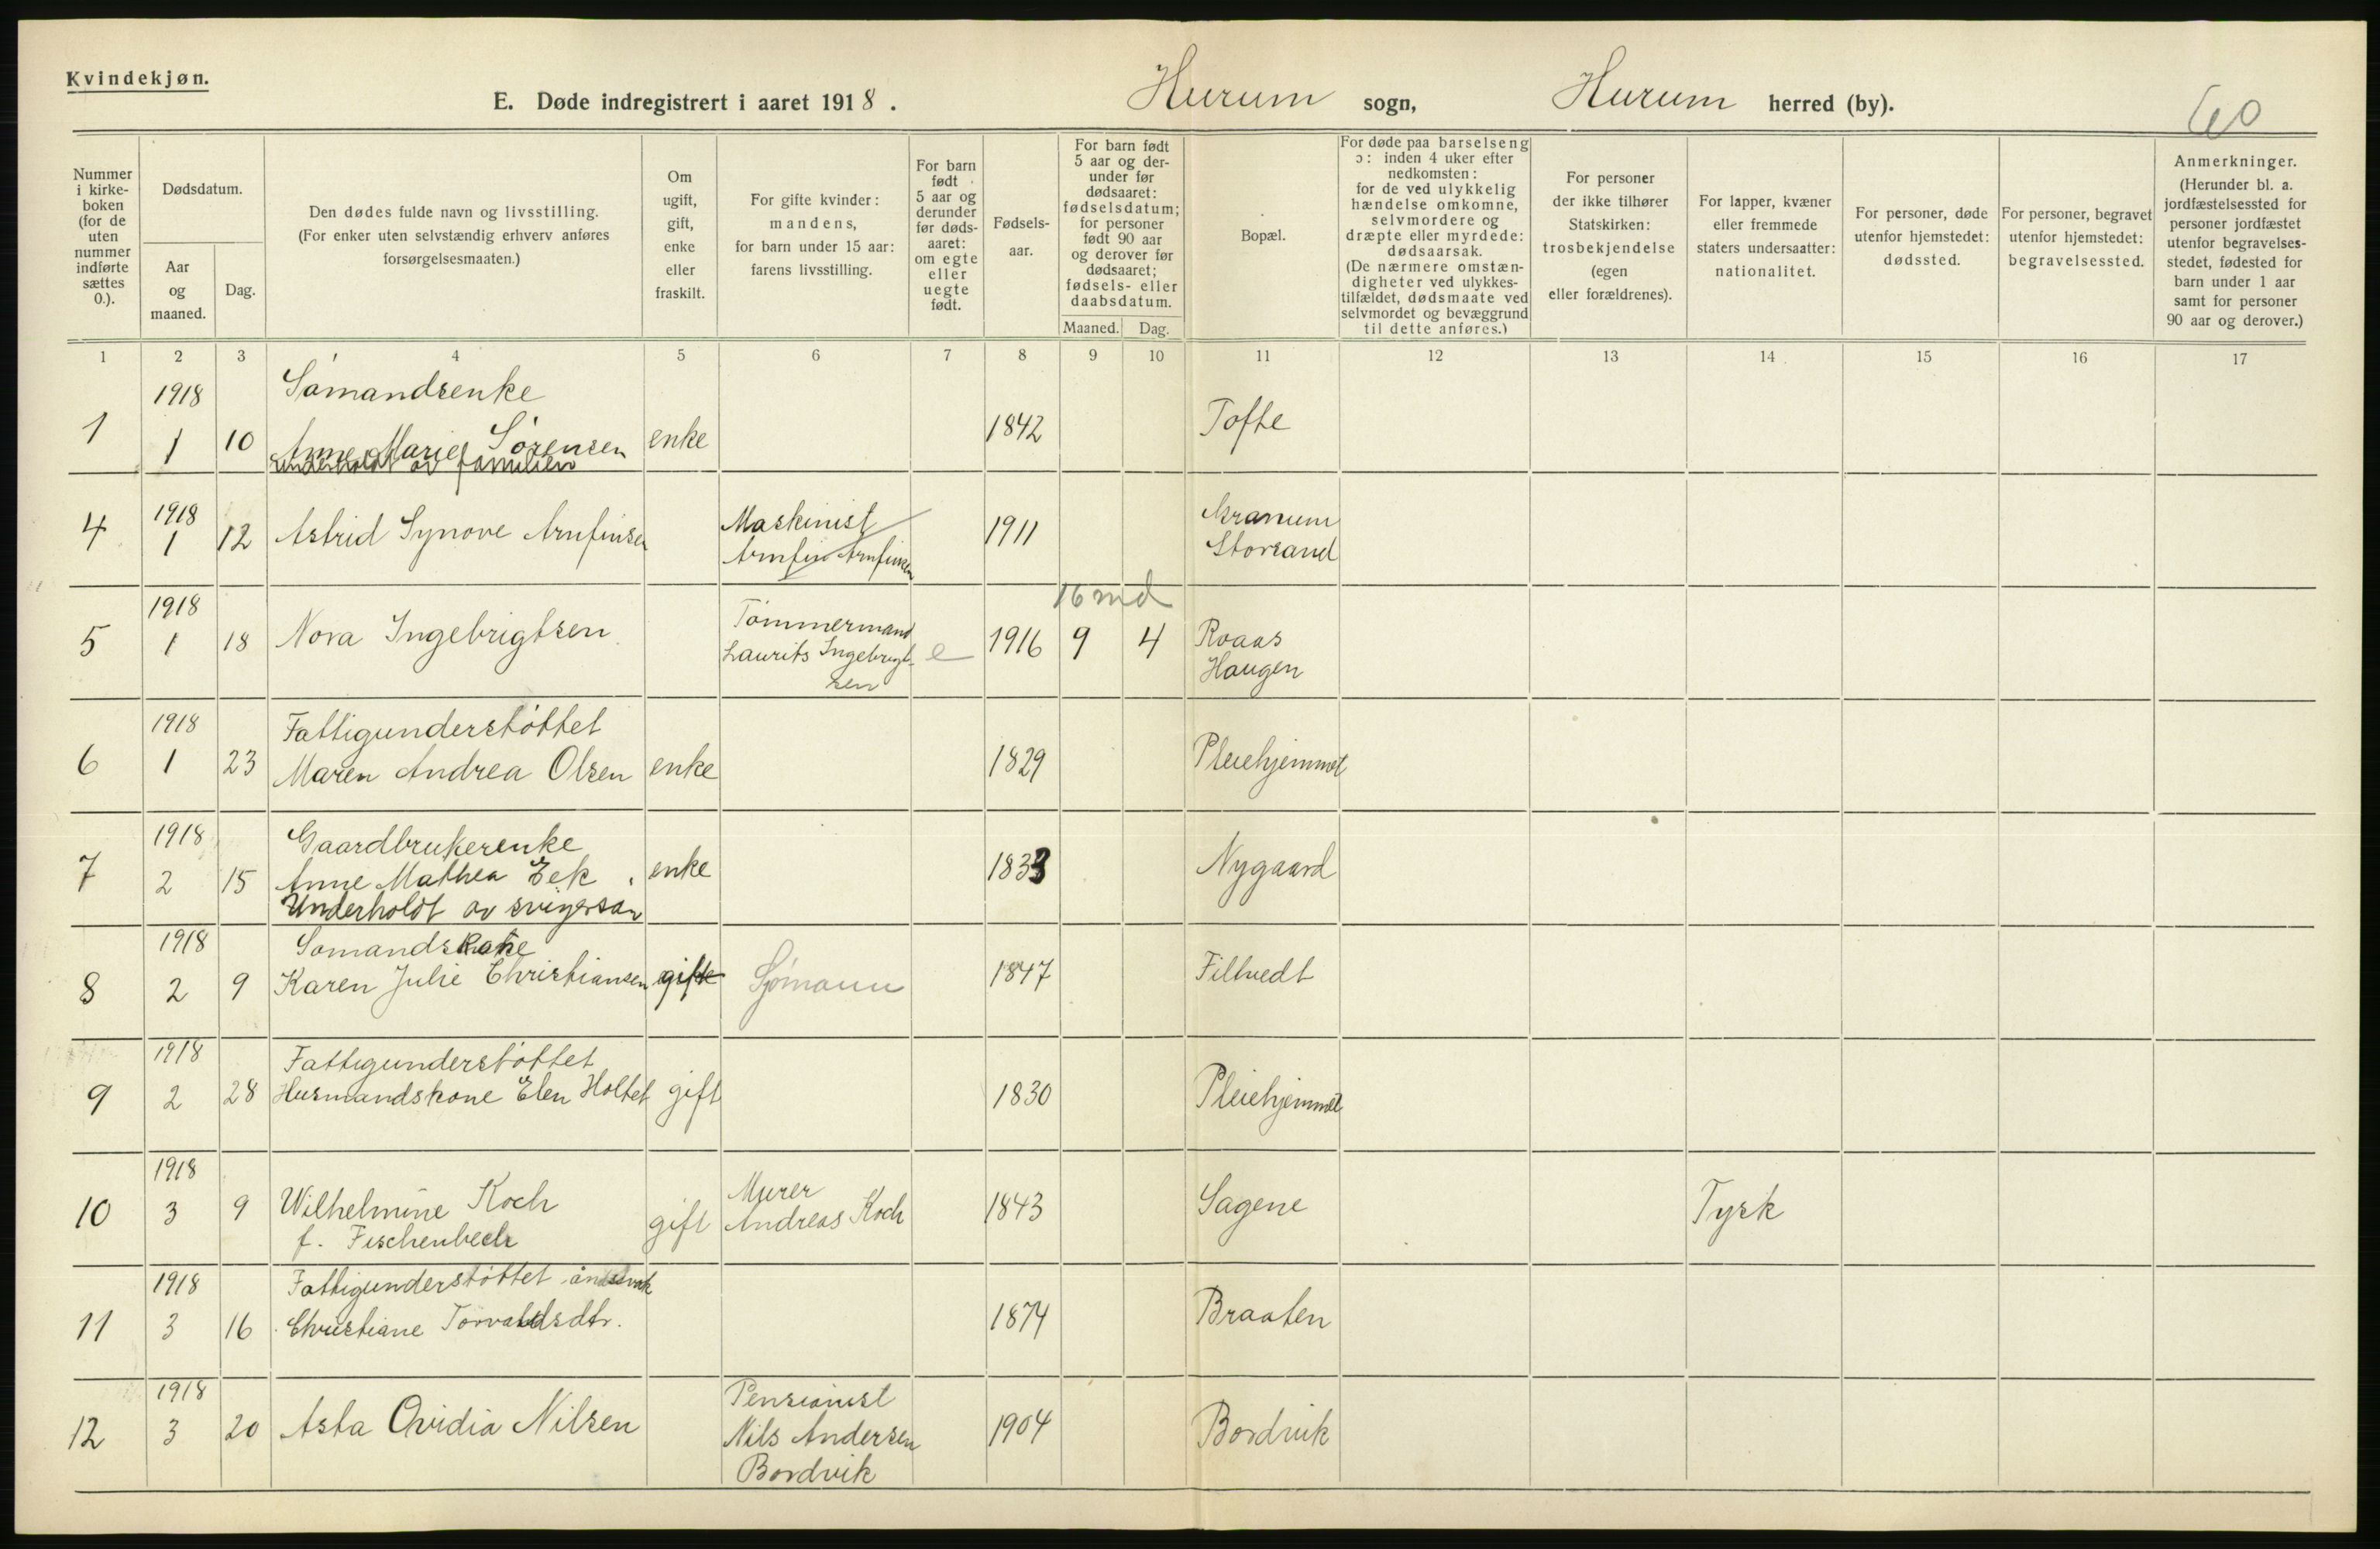 Kvindekjøn.
E. Døde indregistrert i aaret 1918. Hurum sogn, Hurum herred (by).
60
Nummer i kirke- boken (for de uten nummer indførte sættes 0.).
Dødsdatum.
Aar og maaned.
Dag.
Den dødes fulde navn og livsstilling.
(For enker uten selvstændig erhverv anføres
forsørgelsesmaaten.)
Om ugift, gift, enke eller fraskilt.
For gifte kvinder:
mandens,
for barn under 15 aar:
farens livsstilling.
For barn født 5 aar og derunder før døds- aaret: om egte eller uegte født.
Fødsels- aar.
For barn født 5 aar og der- under før dødsaaret: fødselsdatum; for personer født 90 aar og derover før dødsaaret; fødsels- eller daabsdatum.
Maaned. Dag.
Bopæl.
For døde paa barselseng
ɔ: inden 4 uker efter
nedkomsten:
for de ved ulykkelig
hændelse omkomne,
selvmordere og
dræpte eller myrdede:
dødsaarsak.
(De nærmere omstæn-
digheter ved ulykkes-
tilfældet, dødsmaate ved
selvmordet og bevæggrund
til dette anføres.)
For personer
der ikke tilhører
Statskirken:
trosbekjendelse
(egen
eller forældrenes).
For lapper, kvæner
eller fremmede
staters undersaatter:
nationalitet.
For personer, døde
utenfor hjemstedet:
dødssted.
For personer, begravet
utenfor hjemstedet:
begravelsessted.
Anmerkninger.
(Herunder bl. a.
jordfæstelsessted for
personer jordfæstet
utenfor begravelses-
stedet, fødested for
barn under 1 aar
samt for personer
90 aar og derover.)
1 2 3 4 5 6 7 8 9 10 11 12 13 14 15 16 17
1918 Sømandsenke
1 1 10 Anne Marie Sørensen enke 1842 Tofte
underholdt av familien
1918 Maskinist
4 1 12 Astrid Synove Arnfinsen Arnfin Arnfinsen 1911 Storsand
1918 Tømmermand 16 md
5 1 18 Nova Ingebrigtsen Laurits Ingebrigt- e 1916 9 4 Roaas
sen Haugen
1918 Fattigunderstøttet
6 1 23 Maren Andrea Olsen enke 1829 Pleiehjemmet
1918 Gaardbrukerenke
7 2 15 Anne Mathea Eek enke 1833 Nygaard
Underholdt av svigersøn
1918 Sømandskone
8 2 9 Karen Julie Christiansen gift Sjømann 1847 Filtvedt
1918 Fattigunderstøttet
9 2 28 Husmandskone Elen Holtet gift 1830 Pleiehjemmet
1918 Murer
10 3 9 Wilhelmine Koch gift Andreas Koch 1843 Sagene Tysk
f. Fischenbeck
1918 Fattigunderstøttet åndssvak
11 3 16 Christiane Torvaldsdtr. 1874 Braaten
1918 Pensionist
12 3 20 Asta Ovidia Nilsen Nils Andersen 1904 Bordvik
Bordvik